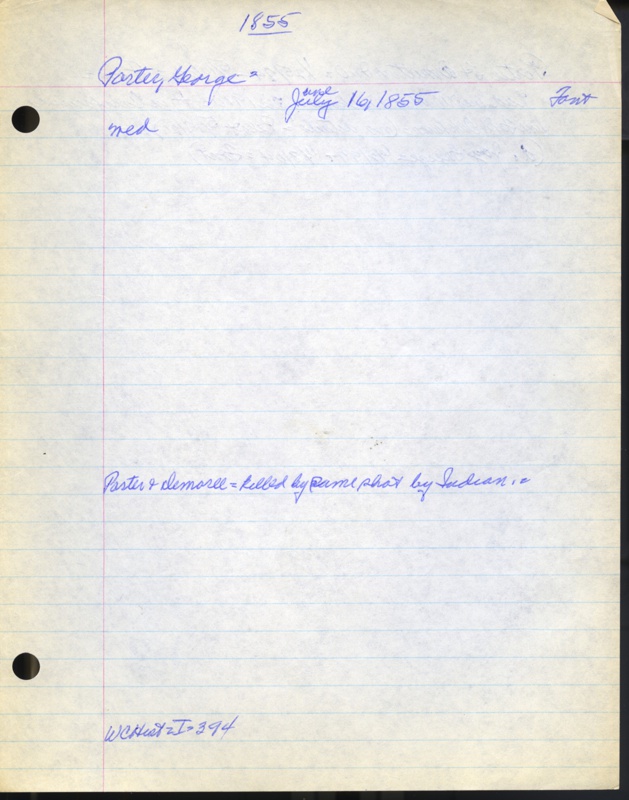 1855
Porter, George =
June
July 16, 1855 Font
med
Porter & Demoree = Killed by same shot by Indian. =
WCHist = I = 394